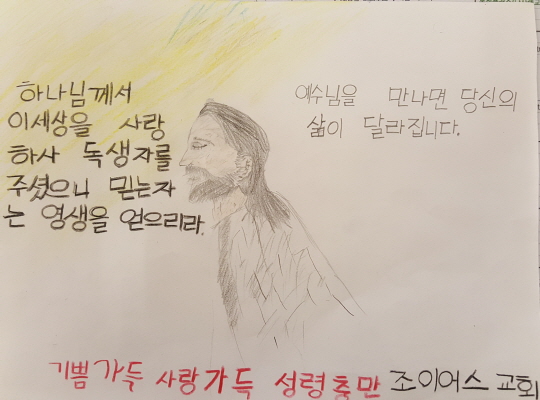 하나님께서
이세상을 사랑
하사 독생자를
주셨으니 믿는자
는 영생을 얻으리라.
예수님을 만나면 당신의
삶이 달라집니다.
기쁨가득 사랑가득 성령충만 조이어스 교회